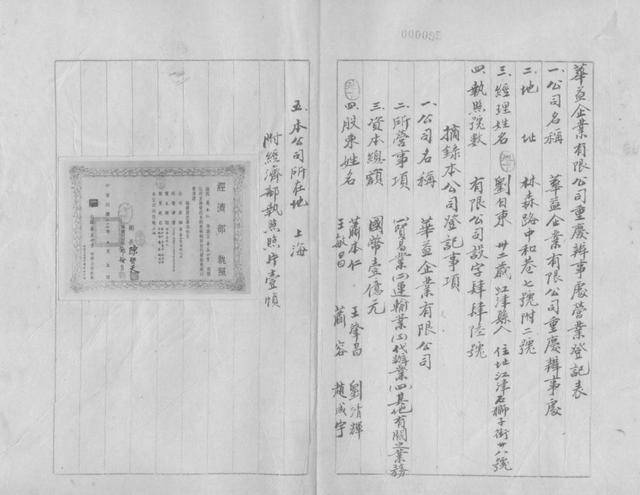 華益企業有限公司重慶辦事處營業登記表
一.公司名稱 華益企業有限公司重慶辦事處
二.地址 林森路中和巷七號附二號
三.經理姓名 劉自東 卅二歲 江津縣人 住址江津石獅子街廿八號
四.執照號數 有限公司設字肆肆陸號
摘錄本公司登記事項
一.公司名稱 華益企業有限公司
二.所營事項 (一)貿易業(二)運輸業(三)代辦業(四)其他有關之業務
三.資本總額 國幣壹億元
四.股東姓名 蕭本仁 王肇昌 劉清輝
王敏昌 蕭容 趙成宇
五.本公司所在地 上海
附經濟部執照照片壹幀
經濟部執照